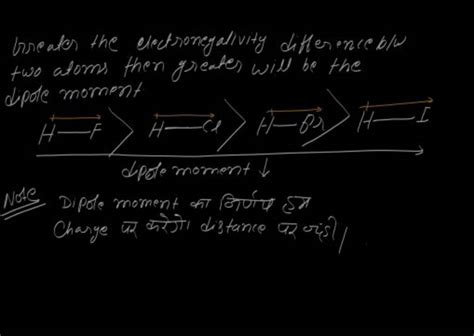 Greater the electronegativity difference b/w
two atoms then greater will be the
dipole moment
H—F > H—Cl > H—Br > H—I
dipole moment ↓
Note Dipole moment का निर्णय हम
Charge पर करेंगे। distance पर नहीं।